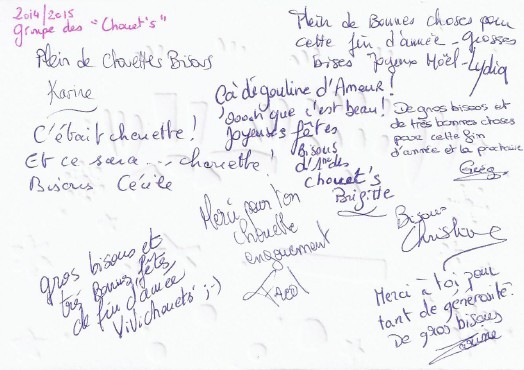 2014/2015
groupe des "Chouet's"
Plein de Chouettes Bisous
Karine
C'était chouette !
Et ce sera .... chouette !
Bisous Cécile
Plein de Bonnes choses pour
cette fin d'année - Grosses
bises Joyeux Noël - Lydia
Cà dégouline d'Amour !
que c'est beau !
Joyeuses fêtes
Bisous
d'1 des
Chouet's
Brigitte
De gros bisous et
de très bonnes choses
pour cette fin
d'année et la prochaine
Greg
Merci pour ton
chouette
engouement
Bisous
Christine
gros bisous et
très Bonnes fêtes
de fin d'année
Vivichouets ;-)
Merci à toi pour
tant de générosité.
De gros bisous